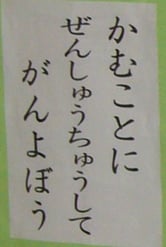 かむことに
ぜんしゅうちゅうして
がんよぼう